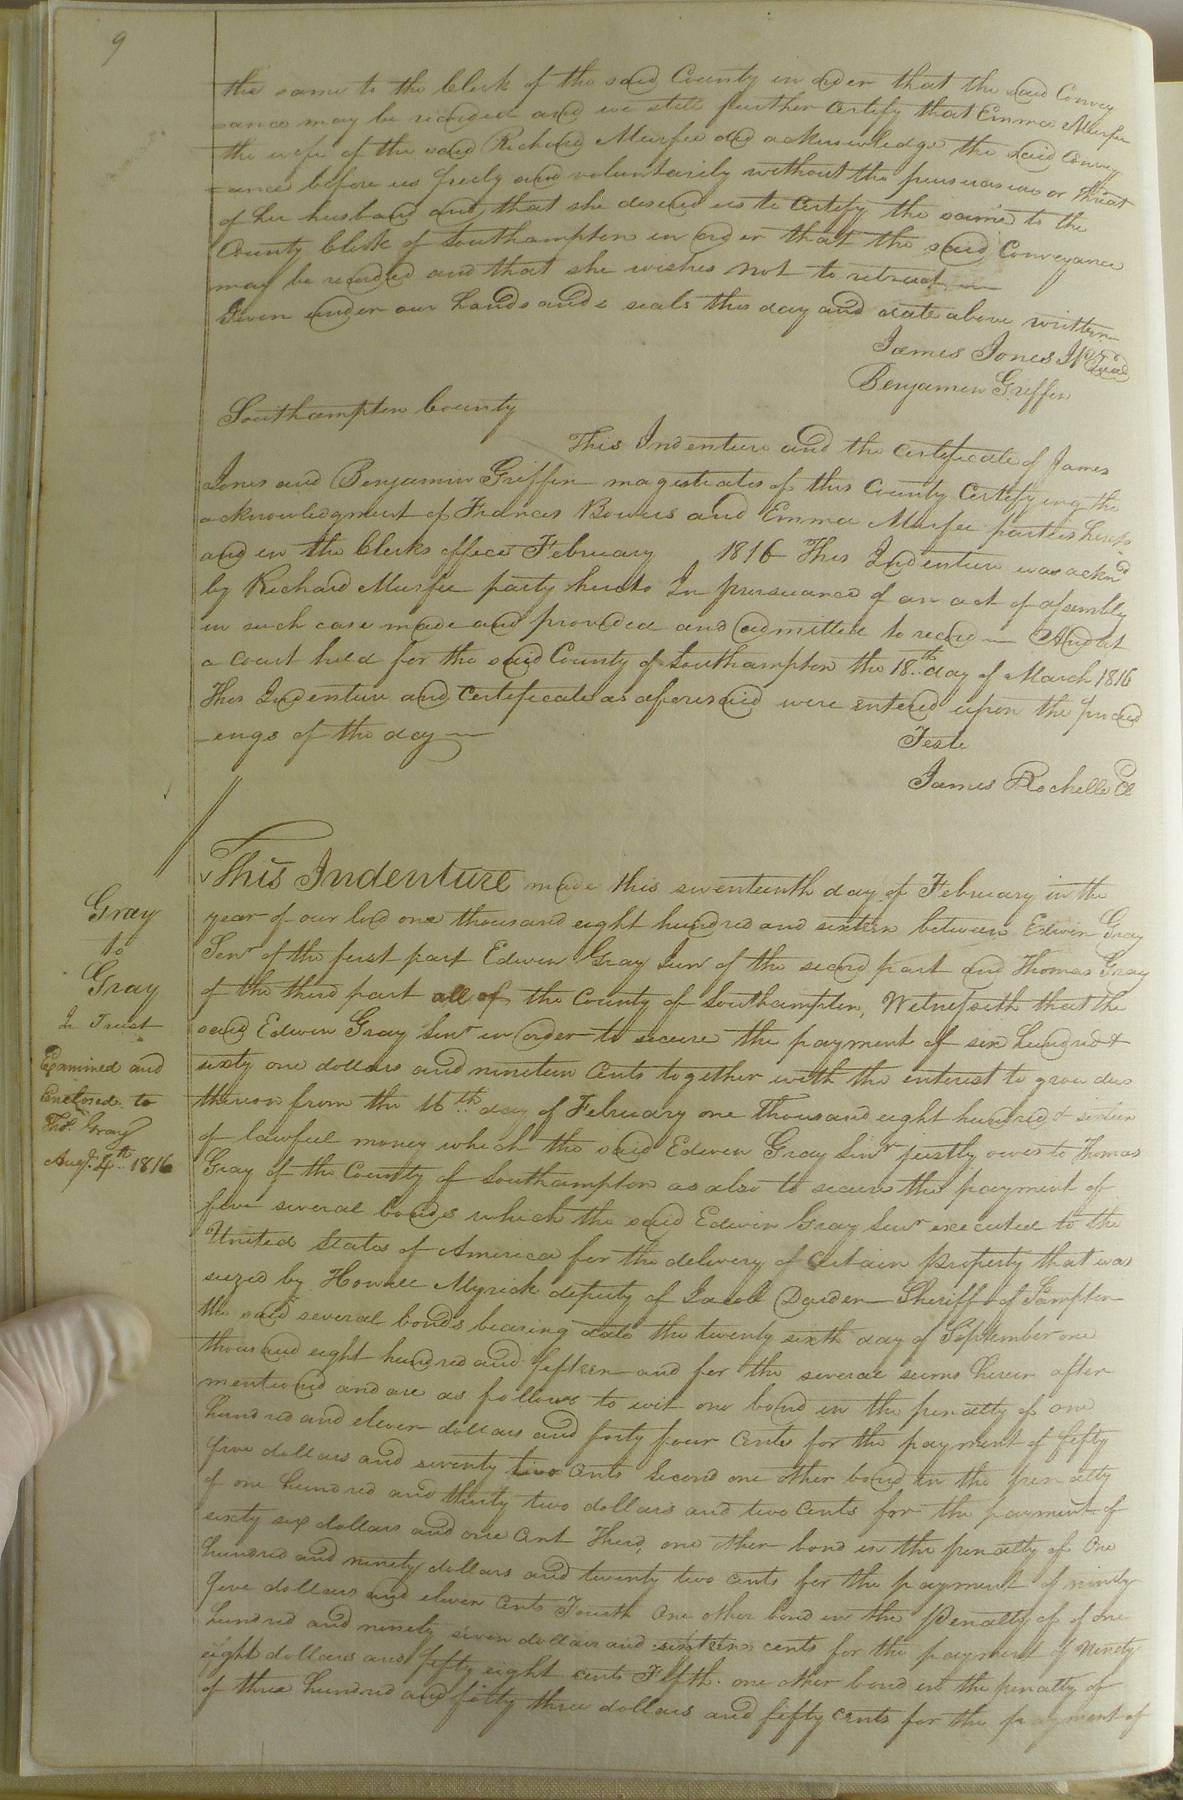 9
the same to the Clerk of the said County in order that the said Convey
ance may be recorded and we still further certify that Emma Murfee
the wife of the said Richard Murfee did acknowledge the said Convey
=ance before us freely and voluntarily without the persuasion or threat
of her husband and that she desired us to certify the same to the
County Clerk of Southampton in order that the said Conveyance
may be recorded and that she wishes not to retract
Given under our hands and seals this day and date above written
James Jones
Benjamin Griffin
Southampton County
This Indenture and the certificate of James
Jones and Benjamin Griffin magistrates of this County Certifying the
acknowledgment of Frances Bowers and Emma Murfee parties hereto
and in the Clerks office February 1816 This Indenture was acknd
by Richard Murfee party hereto In pursuance of an act of assembly
in such case made and provided and admitted to record And at
a Court held for the said County of Southampton the 18th day of March 1816
This Indenture and Certificate as aforesaid were entered upon the proceed
ings of the day
Teste
James Rochelle Cl
This Indenture made this seventeenth day of February in the
year of our lord one thousand eight hundred and sixteen between Edwin Gray
Senr of the first part Edwin Gray Junr of the second part and Thomas Gray
of the third part all of the County of Southampton, Witnesseth that the
said Edwin Gray Senr in order to secure the payment of six hundred &
sixty one dollars and nineteen cents together with the interest to grow due
thereon from the 16th day of February one Thousand eight hundred & sixteen
of lawful money which the said Edwin Gray Senr justly owes to Thomas
Gray of the County of Southampton as also to secure the payment of
five several bonds which the said Edwin Gray Senr executed to the
United States of America for the delivery of Certain property that was
seized by Howell Myrick deputy of Jacob Darden Sheriff of Sampton
the said several bonds bearing date the twenty sixth day of September one
thousand eight hundred and fifteen and for the several sums herein after
mentioned and are as follows to wit one bond in the penalty of one
hundred and eleven dollars and forty four cents for the payment of fifty
five dollars and seventy two cents Second one other bond in the penalty
of one hundred and thirty two dollars and two cents for the payment of
sixty six dollars and one cent Third, one other bond in the penalty of One
hundred and ninety dollars and twenty two cents for the payment of ninety
five dollars and eleven cents Fourth One other bond in the penalty of of one
hundred and ninety seven dollars and sixteen cents for the payment of Ninety
eight dollars and fifty eight cents Fifth. one other bond in the penalty of
of three hundred and fifty three dollars and fifty cents for the payment of
Gray
to
Gray
In Trust
Examined and
Enclosed to
Thos. Gray
Augt. 4th 1816